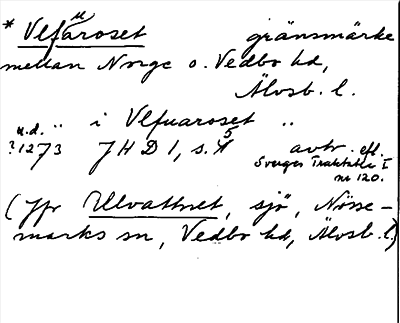 * Vlfüaroset gränsmärke
mellan Norge o. Vedbo hd,
Älvsb. l.
u.d. ¨ i Vlfuaroset ¨
?1273 JHD 1, s. 5 avtr. efl.
Sveriges Traktater I
nr 120.
(Jfr Ulvattnet, sjö, Nösse-
marks sn, Vedbo hd, Älvsb. l.)